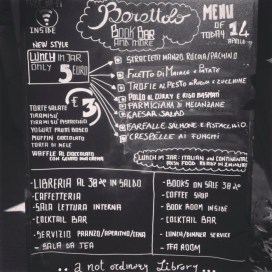 Borottolo
BOOK BAR
AND MORE
INSIDE
MENU
OF TODAY 14
APRILE
NEW STYLE
LUNCH IN JAR
ONLY 5 EURO
STRACCETTI MANZO RUCOLA/PACHINO
FILETTO DI MAIALE E PATATE
TROFIE AL PESTO E ZUCCHINE
POLLO AL CURRY E RISO BASMATI
PARMIGIANA DI MELANZANE
CAESAR SALAD
FARFALLE SALMONE E PISTACCHIO
CRESPELLE AI FUNGHI
€ 3
TORTE SALATE
TIRAMISU'
YOGURT FRUTTI BOSCO
MUFFIN CIOCCOLATO
TORTA DI MELE
WAFFLE AL CIOCCOLATO
LUNCH IN JAR: ITALIAN AND CONTINENTAL
FRESH FOOD READY IN 2 MINUTES
- LIBRERIA AL 30% IN SALDO
- CAFFETTERIA
- SALA LETTURA INTERNA
- COCKTAIL BAR
- SERVIZIO PRANZO/APERITIVO/CENA
- SALA DA TEA
- BOOKS ON SALE 30%
- COFFEE SHOP
- BOOK ROOM INSIDE
- COCKTAIL BAR
- LUNCH/DINNER SERVICE
- TEA ROOM
.. a not ordinary Library...